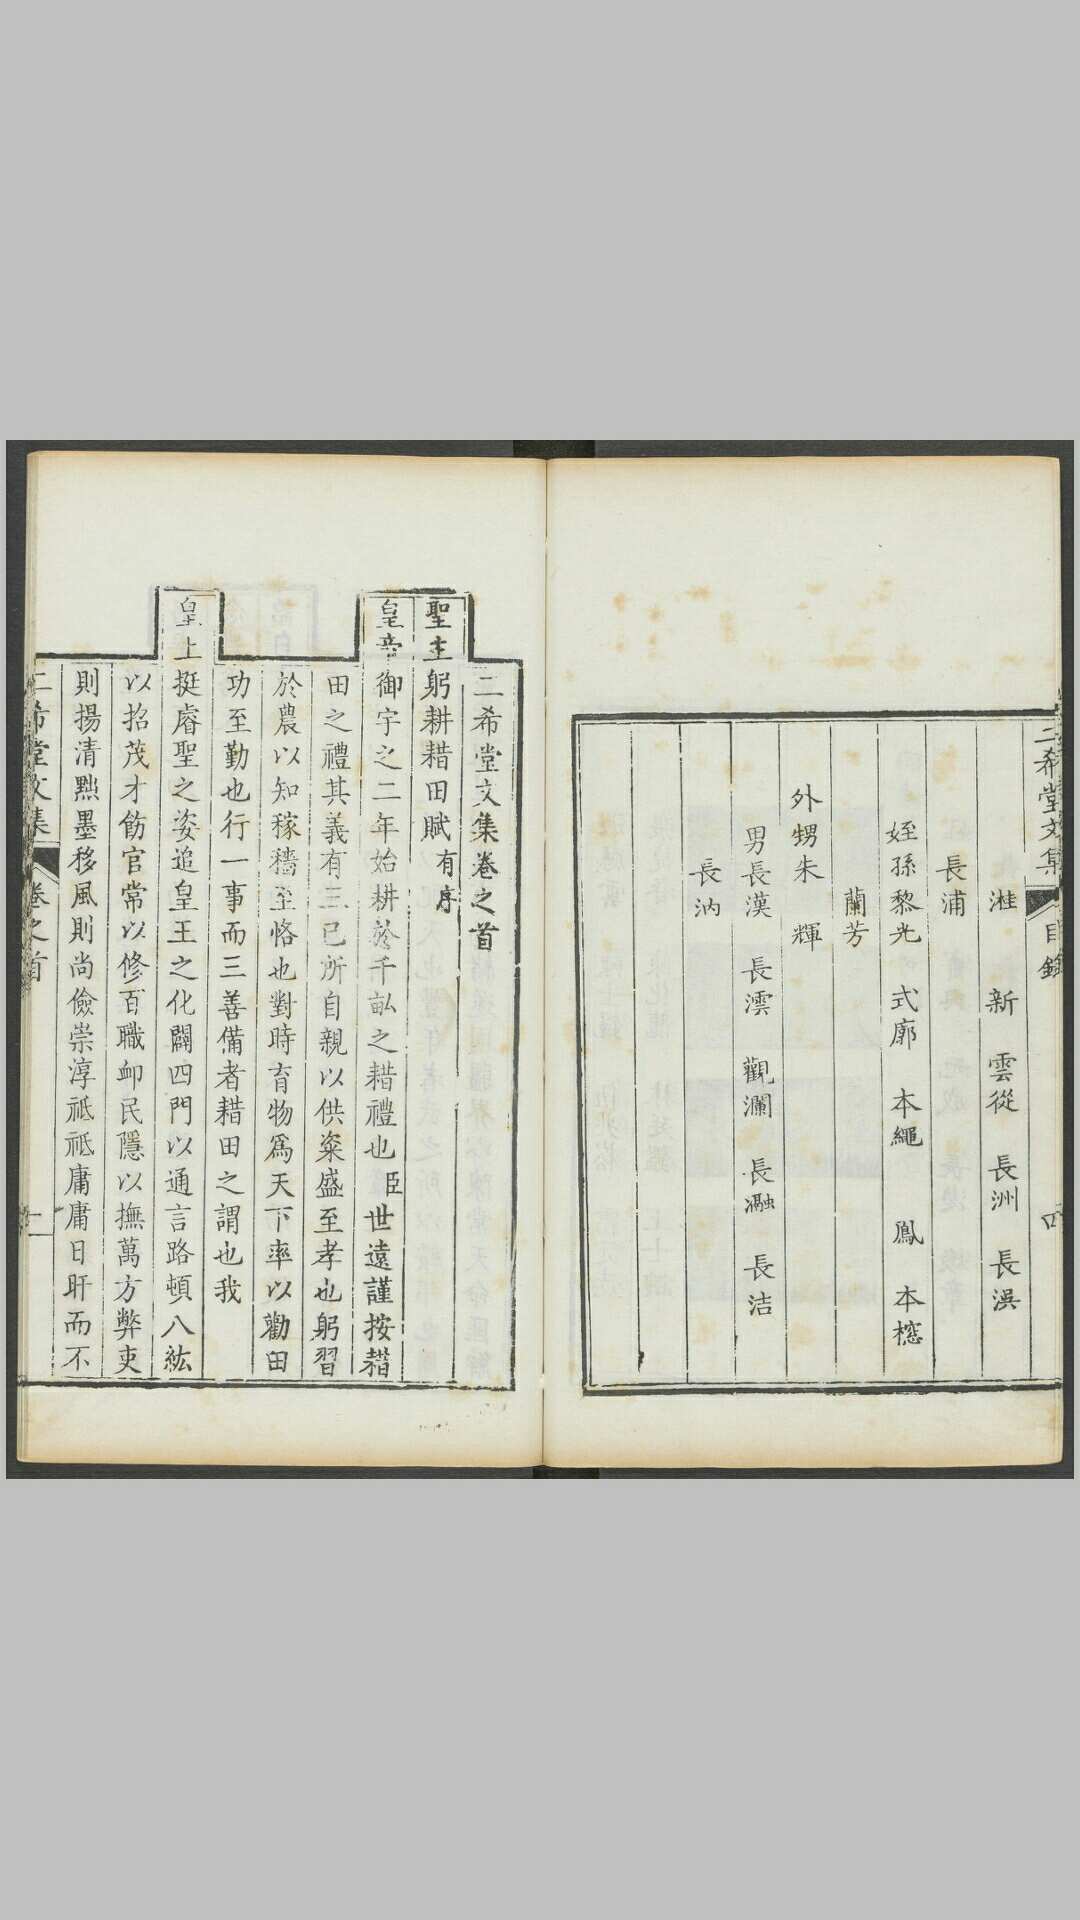 二希堂文集 目錄 四
漄 新 雲從 長洲 長淏
長浦
姪孫黎光 式廓 本繩 鳳 本樒
蘭芳
外甥朱 輝
男長漢 長澐 觀瀾 長瀜 長洁
長汭
二希堂文集卷之首
聖主躬耕耤田賦有序
皇帝御宇之二年始耕於千畝之耤禮也臣世遠謹按耤
田之禮其義有三已所自親以供粢盛至孝也躬習
於農以知稼穡至恪也對時育物爲天下率以勸田
功至勤也行一事而三善備者耤田之謂也我
皇上挺睿聖之姿追皇王之化闢四門以通言路頓八紘
以招茂才飭官常以修百職䘏民隱以撫萬方弊吏
則揚清黜墨移風則尚儉崇淳祗祗庸庸日旰而不
二希堂文集 卷之首 一